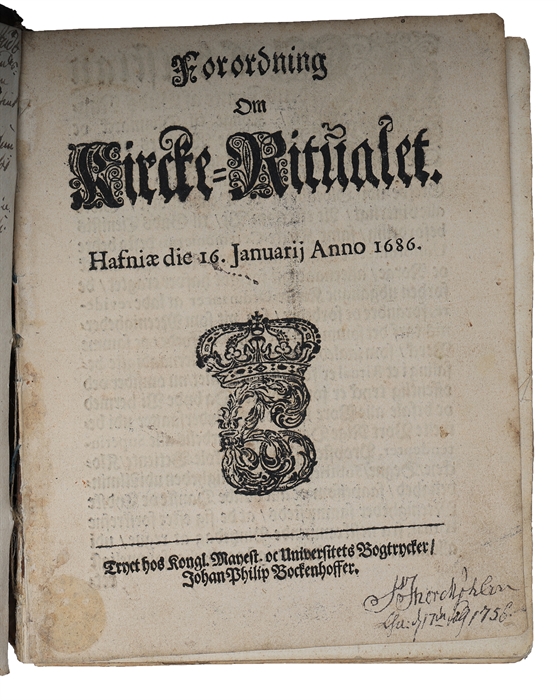 Forordning
Om
Kircke-Ritũalet.
Hafniæ die 16. Januarij Anno 1686.
Tryct hos Kongl. Mayest. oc Universitets Bogtrycker/
Johan Philip Bockenhoffer.
1756.